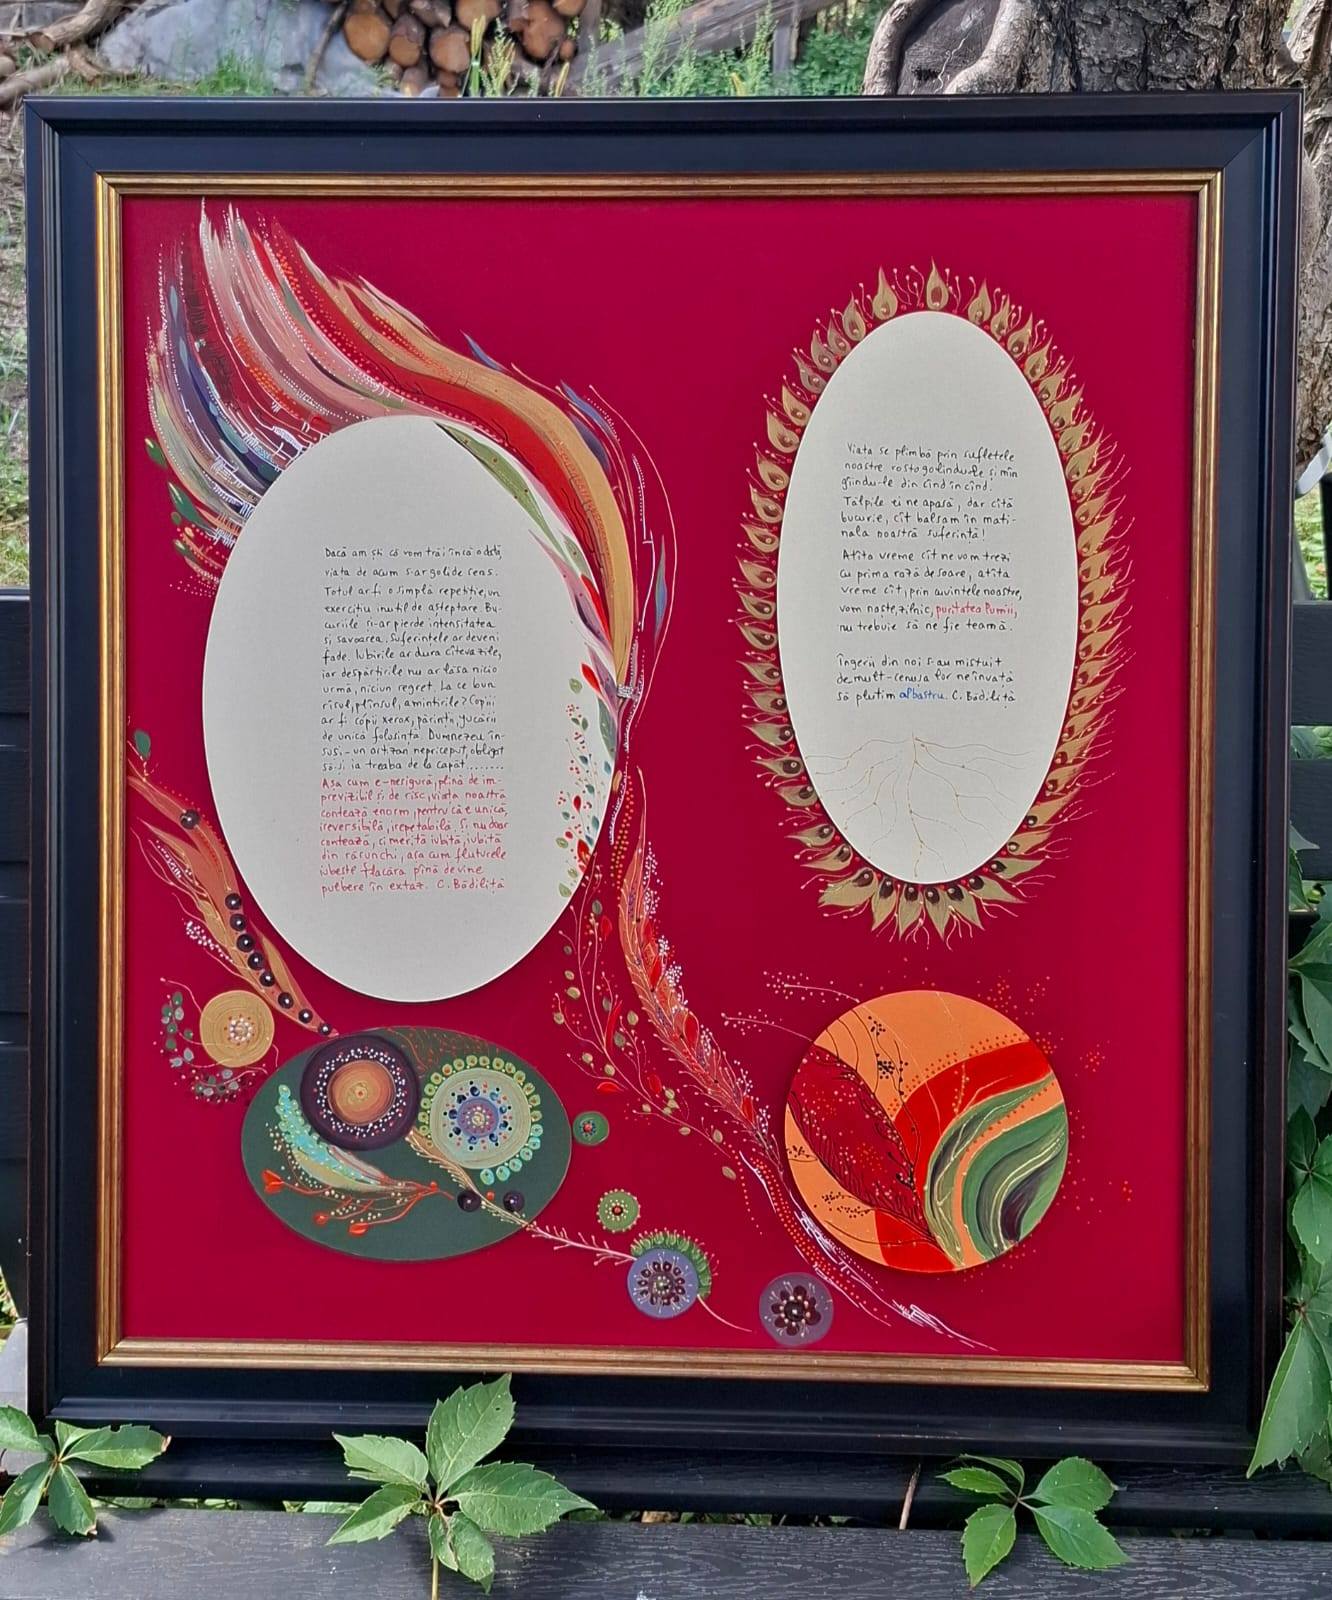 Dacă am ști că vom trăi încă o dată,
viața de acum s-ar goli de sens.
Totul ar fi o simplă repetiție, un
exercițiu inutil de așteptare. Bu-
curiile și-ar pierde intensitatea
și savoarea. Suferințele ar deveni
fade. Iubirile ar dura cîteva zile,
iar despărțirile nu ar lăsa nicio
urmă, niciun regret. La ce bun
rîsul, plînsul, amintirile? Copiii
ar fi copii xerox, părinții, jucării
de unică folosință. Dumnezeu în-
suși - un artizan nepriceput, obligat
să-și ia treaba de la capăt........
Așa cum e-nesigură, plină de im-
previzibil și de risc, viața noastră
contează enorm, pentru că e unică,
ireversibilă, irepetabilă. Și nu doar
contează, ci merită iubită, iubită
din rărunchi, așa cum fluturele
iubește flacăra pînă devine
pulbere în extaz. C. Bădiliță
Viața se plimbă prin sufletele
noastre rostogolindu-le și mîn
gîindu-le din cînd în cînd.
Tălpile ei ne apasă, dar cîtă
bucurie, cît balsam în mati-
nala noastră suferință!
Atîta vreme cît ne vom trezi
cu prima rază de soare, atîta
vreme cît, prin cuvintele noastre,
vom naște, zilnic, puritatea lumii,
nu trebuie să ne fie teamă.
Îngerii din noi s-au mistuit
de mult - cenușa lor ne învață
să plutim albastru. C. Bădiliță